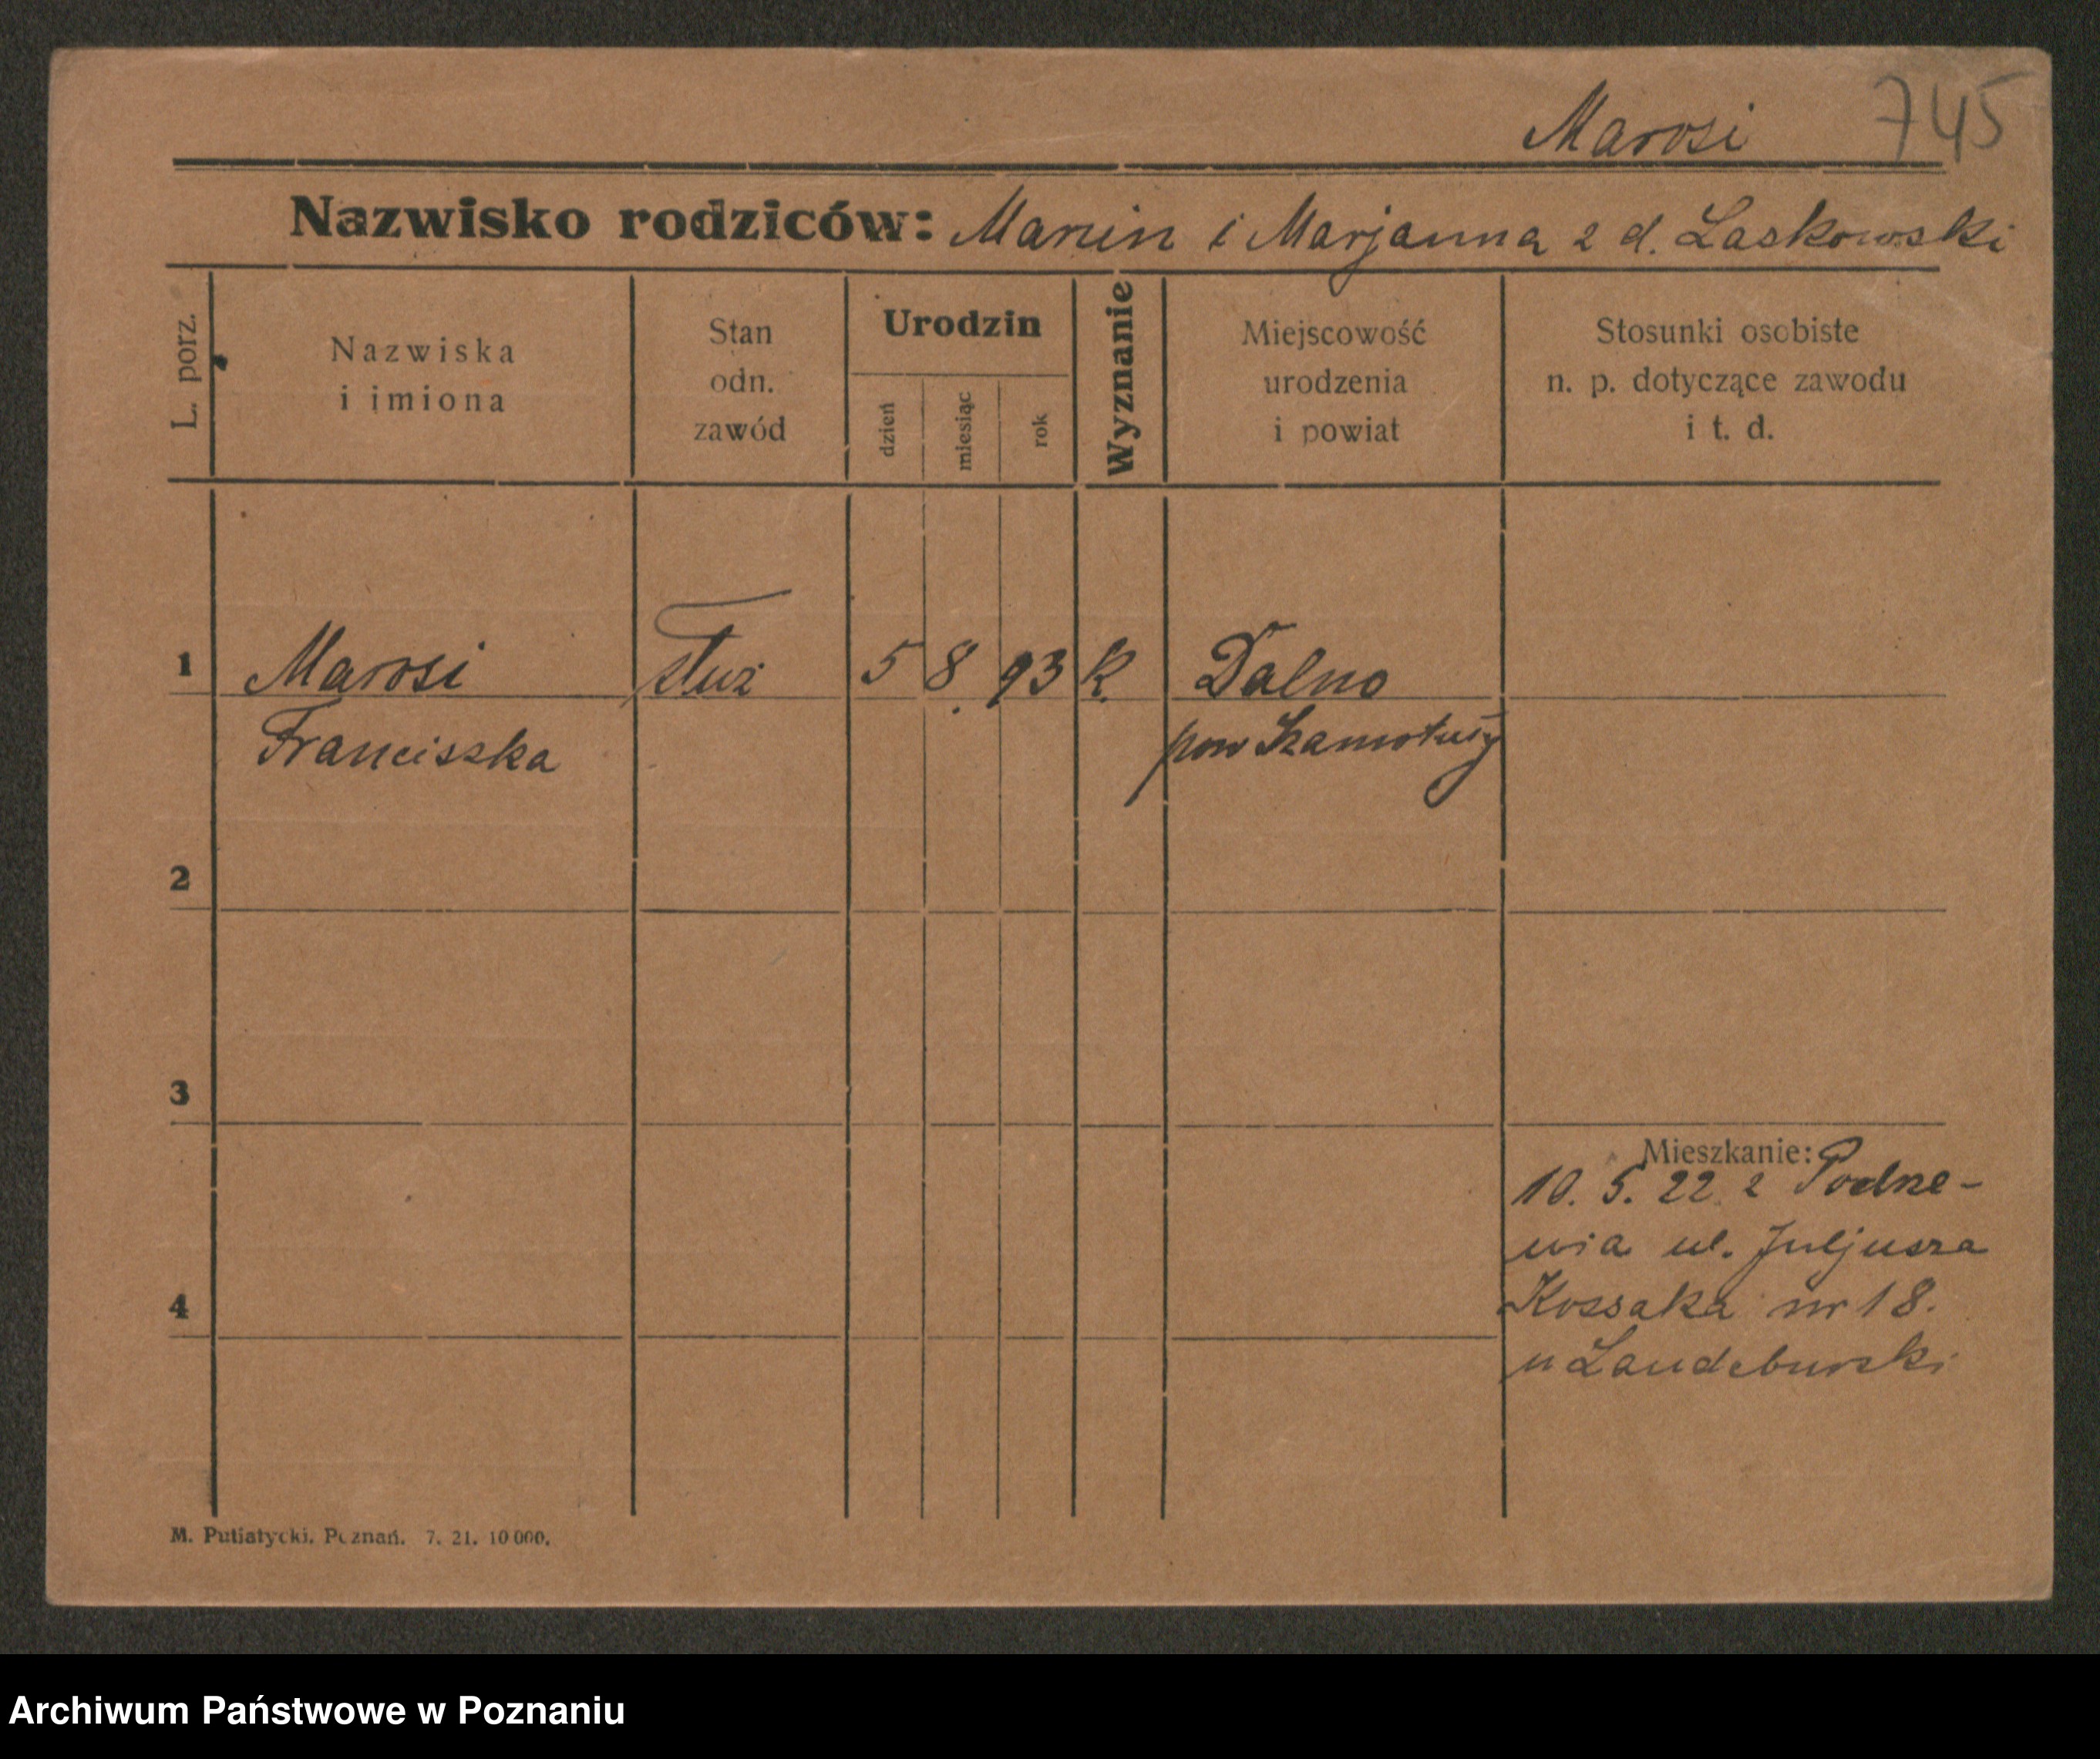 Marosi 745
Nazwisko rodziców: Marcin i Marjanna z d. Laskowski
L. porz.
Nazwiska
i imiona
Stan
odn.
zawód
Urodzin
dzień
miesiąc
rok
Wyznanie
Miejscowość
urodzenia
i powiat
Stosunki osobiste
n. p. dotyczące zawodu
i t. d.
1 Marosi służ 5 8. 93 K. Dalno
Franciszka pow Szamotuły
2
3
Mieszkanie:
10. 5. 22 z
wia ul. Juljusza
4 Kossaka nr 18.
u
M. Putiatycki. Poznań. 7. 21. 10 000.
Archiwum Państwowe w Poznaniu